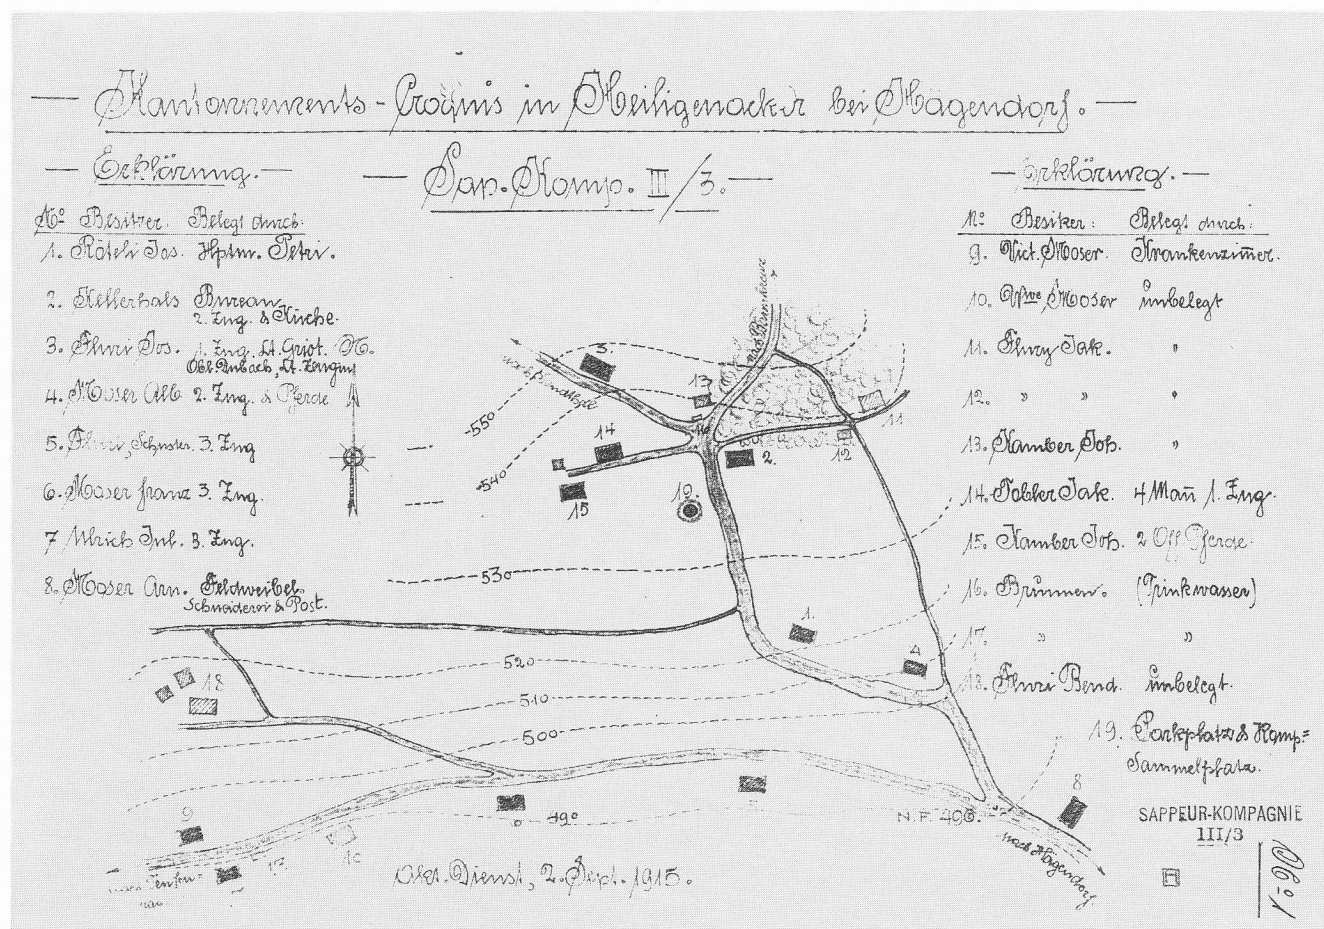 Kantonnements-Croquis in Heiligenacker bei Hägendorf.
Sap. Komp. III/3.
Erklärung.
No Besitzer. Belegt durch:
1. Röteli Jos. Hptm. Petri.
2. Kellerhals Bureau
2. Zug. & Küche.
3. Flury Jos. 1. Zug. Lt. Griot.
4. Moser Alb. 2. Zug. & Pferde
5. Schuster. 3. Zug
6. Moser Franz 3. Zug.
7 Ulrich Jul. 3. Zug.
8. Moser Arn. Feldweibel.
Schneiderei & Post.
Erklärung.
No Besitzer: Belegt durch:
9. Vict. Moser. Krankenzimmer.
10. Wwe Moser unbelegt
11. Flury Jak. "
12. " " "
13. Kamber Joh. "
14. Tobler Jak. 4 Mañ 1. Zug.
15. Kamber Joh. 2 Off. Pferde.
16. Brunnen. (Trinkwasser)
17. " "
18. Fluri Bend. unbelegt.
19. Parkplatz & Komp=
Sammelplatz.
3.
13
14
15
19.
2.
12
11
-550
-540
530
520
510
500
490
1.
4
18
9
8
17
N.P. 496.
nach Hägendorf.
Akt. Dienst, 2. Sept. 1915.
SAPPEUR-KOMPAGNIE
III/3